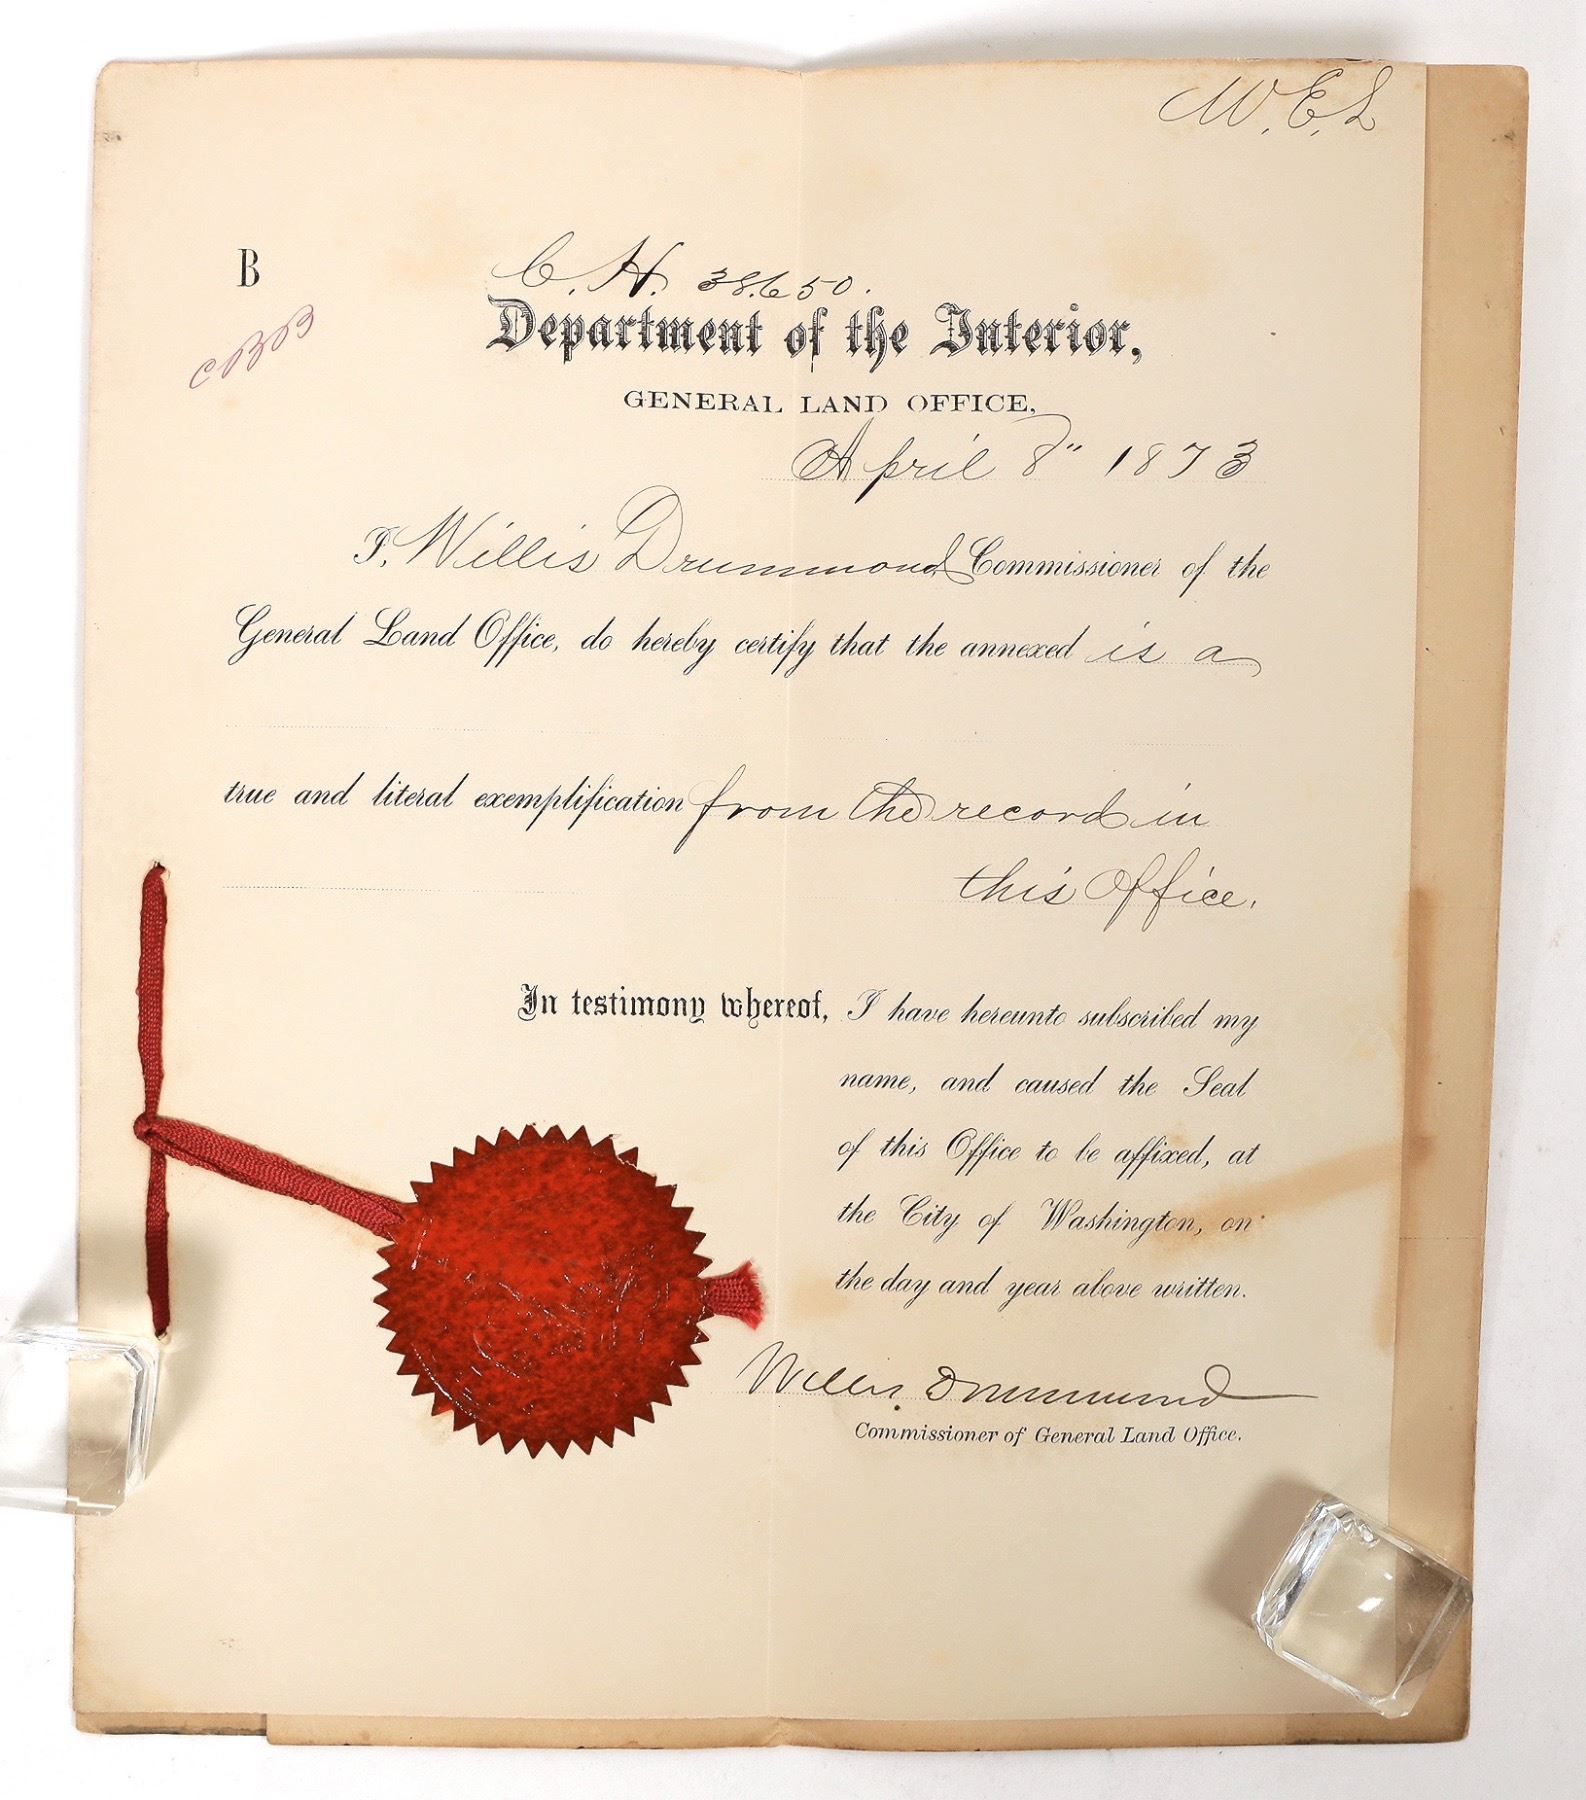 W. E. L
B
C. H. 38.650.
CBB
Department of the Interior,
GENERAL LAND OFFICE,
April 8" 1873
I, Willis Drummond, Commissioner of the
General Land Office, do hereby certify that the annexed is a
true and literal exemplification from the record in
this Office.
In testimony whereof, I have hereunto subscribed my
name, and caused the Seal
of this Office to be affixed, at
the City of Washington, on
the day and year above written.
Willis Drummond
Commissioner of General Land Office.